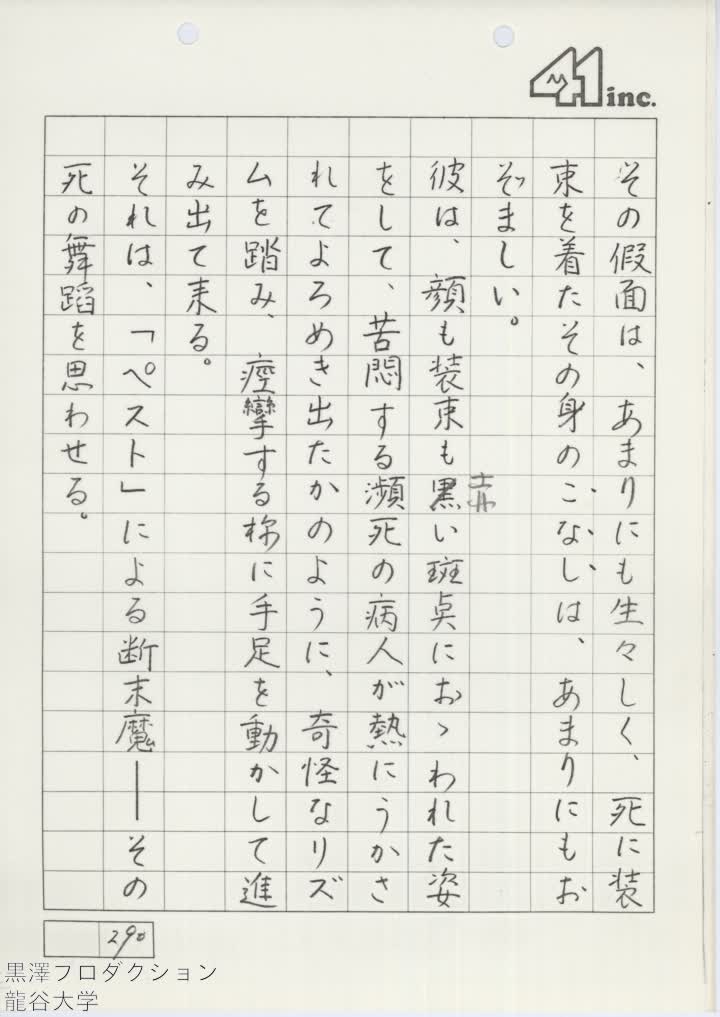 41 inc.
その假面は、あまりにも生々しく、死に装
束を着たその身のこなしは、あまりにもお
ぞましい。
彼は、顔も装束も黒い斑点におゝわれた姿
をして、苦悶する瀕死の病人が熱にうかさ
れてよろめき出たかのように、奇怪なリズ
ムを踏み、痙攣する様に手足を動かして進
み出て来る。
それは、「ペスト」による断末魔――その
死の舞蹈を思わせる。
黒澤プロダクション
龍谷大学